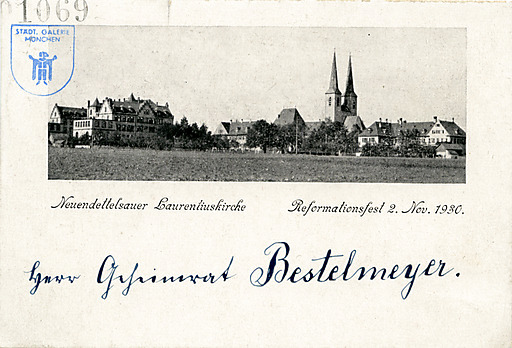 01069
STÄDT. GALERIE
MÜNCHEN
Neuendettelsauer Laurentiuskirche Reformationsfest 2. Nov. 1930.
Herr Geheimrat Bestelmeyer.